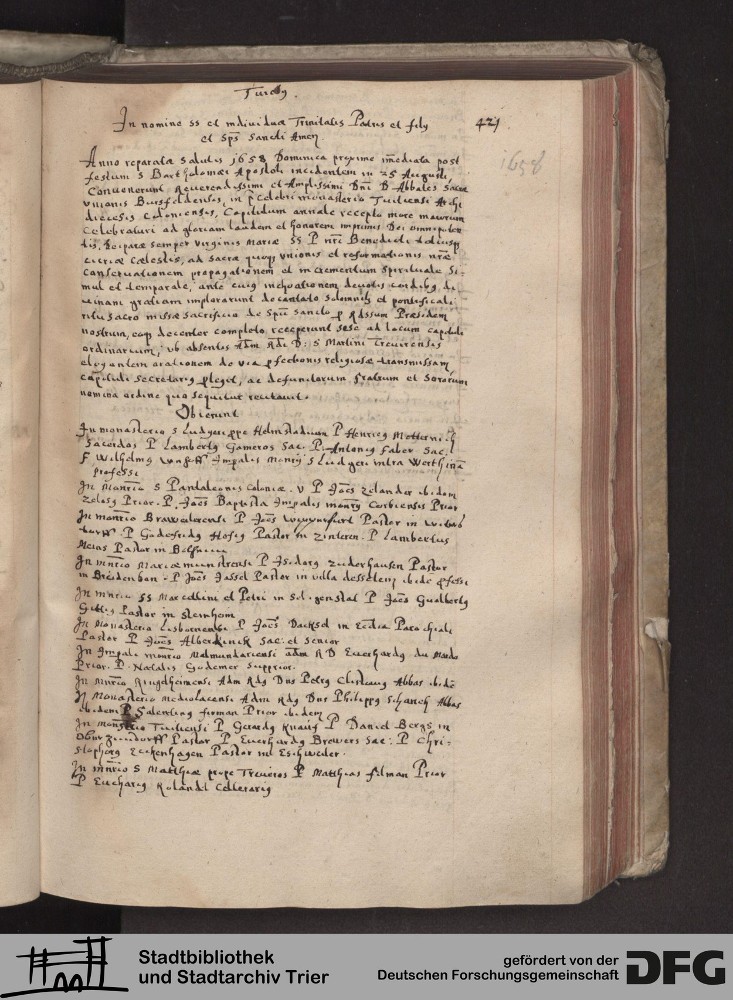 Tuitÿ.
421
In nomine SS et individuæ Trinitatis Patris et filÿ
et Sp̄s Sancti Amen
1658
Anno reparatæ Salutis 1658 Dominica proxime im̄ediata post
festum S Bartholomæi Apostoli incidentem in 25 Augusti,
Convenerunt Reverendissimi et Amplissimi Dn̄i D Abbates Sacræ
unionis Bursfeldensis, in celebri monasterio Tuitiensi Archi
diœcesis Coloniensis, Capitulum annale recepto more maiorum
Celebraturi ad gloriam laudem et honorem imprimis Dei omnipoten
tis, Deiparæ semper virginis Mariæ SS P nr̄i Benedicti totiusq
curiæ Cælestis, ad Sacræ quoq unionis et reformationis nr̄æ
Conservationem propagationem et incrementum Spirituale Si-
mul et temporale, ante cuiq inchoationem devotis cordibq di
vinam gratiam implorarunt decantato Solemnis et pontificali
ritu Sacro missæ Sacrificio de Sp̄u Sancto p Rdssum Præsidem
nostrum, eoq decenter completo receperunt sese ad locum capituli
ordinarium, ub absentis Adm Rdi D: S Martini Trevirensis
elegantem orationem de via pfectionis religiosæ transmissam
Capituli Secretariq plegit, ac defunctorum fratrum et Sororum
nomina ordine quo sequitur recitavit.
Obierunt
In monasterio S Ludgeri ppe Helmstadium P Henricq Metternich
Sacerdos P Lambertq Gameros Sac. P. Antoniq Faber Sac.
F Wilhelmq Imptalis Monrÿ S Ludgeri intra Werthinā
professi
In Monrio S Pantaleonis Coloniæ. V P Joēs Zelander ibidem
Zelosq Prior. P. Joēs Baptista Imptalis monrÿ Corbiensis Prior
In monrio Brawelarensi P Joēs Pastor in
P Godefridq Pastor in Zinteren. P Lambertus
Meras Pastor in
In mnrio Mariæmunstrensi P Isidorq Zuderhausen Pastor
in Breidenbon. P Joēs Jassel Pastor in villa desselem ibidē pfessi
In mnrio SS Marcellini et Petri in Seligenstat P Joēs Gualbertq
Pastor in Steinheim
In Monasterio Lisbornensi P Joēs Dacksel in Ecclia Parochiali
Pastor P Joēs Alberkinck Sac: et Senior
In Imptali monrio Malmundariensi adm R D Everhardq du
Prior. P. Natalis Godemer Supprior.
In Mnrio Ringelheimensi Adm Rdq Dns Petrq Abbas ibidē
In Monasterio Mediolacensi Adm Rdq Dns Philippq Schanck Abbas
ibidem P Salentinq firman Prior ibidem
In monasterio Tuitiensi P Gerardq Knauf P Daniel Bergs in
Pastor P Everhardq Brewers Sac: P Chri-
stophorq Zeckenhagen Pastor in Eschweiler.
In mnrio S Matthiæ prope Treviros P Matthias filman Prior
P Euchariq Rolandt Cellerariq
Stadtbibliothek
und Stadtarchiv Trier
gefördert von der
Deutschen Forschungsgemeinschaft
DFG